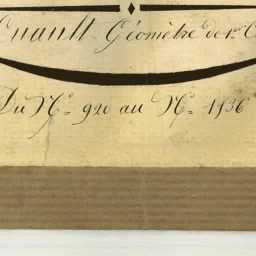 Cuault Géomètre de 1re C
Du No. 920 au No. 1136